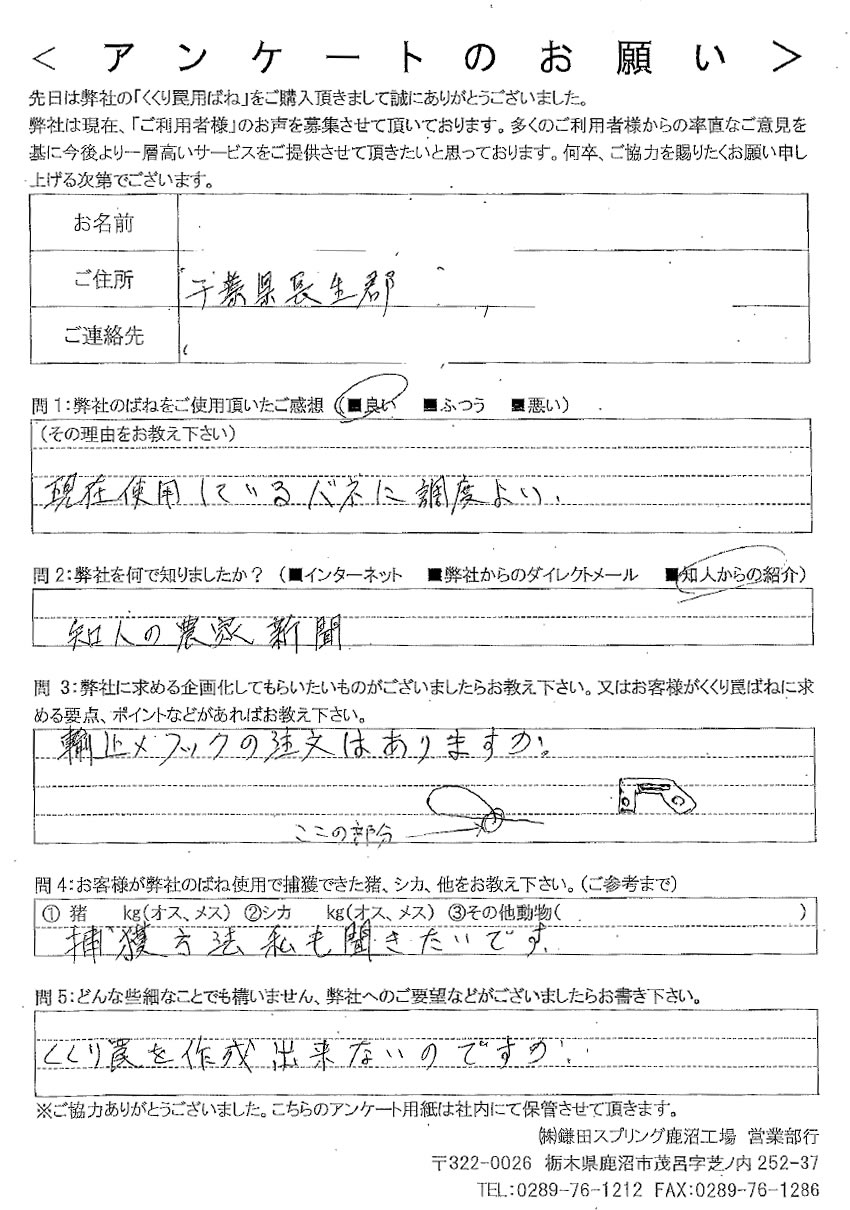 ＜ アンケートのお願い ＞
先日は弊社の「くくり罠用ばね」をご購入頂きまして誠にありがとうございました。
弊社は現在、「ご利用者様」のお声を募集させて頂いております。多くのご利用者様からの率直なご意見を
基に今後より一層高いサービスをご提供させて頂きたいと思っております。何卒、ご協力を賜りたくお願い申し
上げる次第でございます。
お名前
ご住所 千葉県長生郡
ご連絡先
問1:弊社のばねをご使用頂いたご感想 (■良い ■ふつう ■悪い)
(その理由をお教え下さい)
現在使用しているバネに調度よい.
問2:弊社を何で知りましたか？ (■インターネット ■弊社からのダイレクトメール ■知人からの紹介)
知人の農家新聞
問 3:弊社に求める企画化してもらいたいものがございましたらお教え下さい。又はお客様がくくり罠ばねに求
める要点、ポイントなどがあればお教え下さい。
輪止メフックの注文はありますか。
ここの部分
問4:お客様が弊社のばね使用で捕獲できた猪、シカ、他をお教え下さい。(ご参考まで)
① 猪 kg(オス、メス) ②シカ kg(オス、メス) ③その他動物( )
捕獲方法私も聞きたいです.
問5:どんな些細なことでも構いません、弊社へのご要望などがございましたらお書き下さい。
くくり罠を作成出来ないのですか.
※ご協力ありがとうございました。こちらのアンケート用紙は社内にて保管させて頂きます。
㈱鎌田スプリング鹿沼工場 営業部行
〒322-0026 栃木県鹿沼市茂呂字芝ノ内 252-37
TEL:0289-76-1212 FAX:0289-76-1286